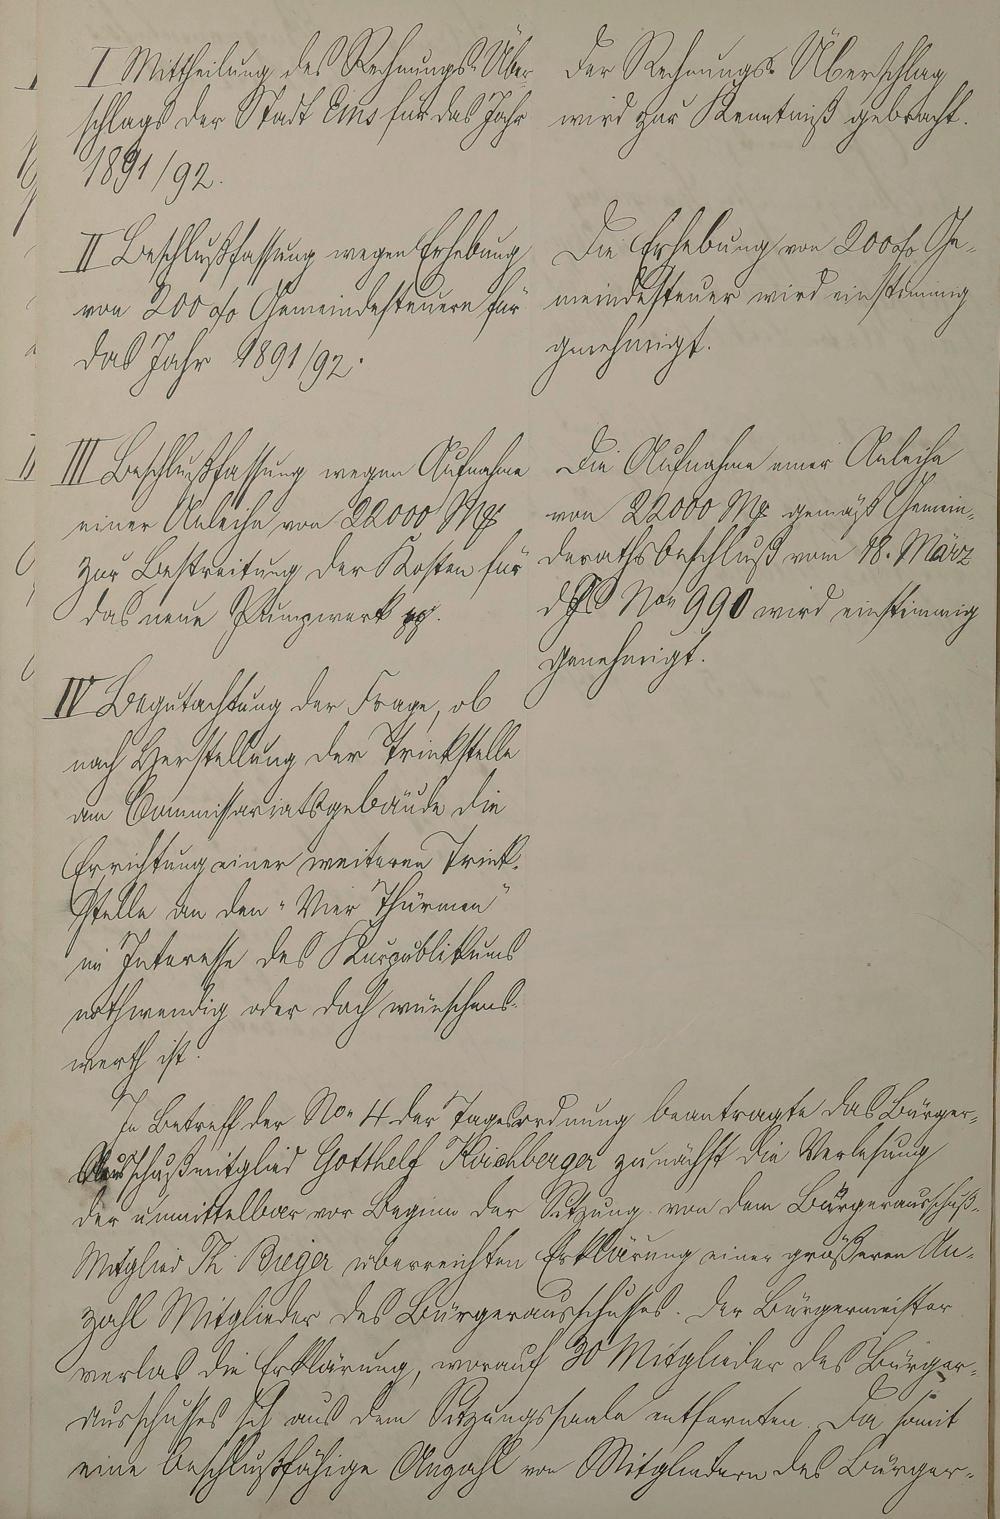 I Mittheilung des Rechnungs-Über-
schlags der Stadt Ems für das Jahr
1891/92.
Der Rechnungs-Überschlag
wird zur Kenntniß gebracht.
II Beschlußfassung wegen Erhebung
von 200 % Gemeindesteuern für
das Jahr 1891/92.
Die Erhebung von 200 % Ge-
meindesteuer wird einstimmig
genehmigt.
III Beschlußfassung wegen Aufnahme
einer Anleihe von 22000 Mk
zur Bestreitung der Kosten für
das neue Pumpwerk pp.
Die Aufnahme einer Anleihe
von 22000 Mk gemäß Gemein-
derathsbeschluß vom 18. März
ds Js No 990 wird einstimmig
genehmigt.
IV Begutachtung der Frage, ob
nach Herstellung der Trinkstelle
am Commissariatsgebäude die
Errichtung einer weiteren Trink-
stelle an den "Vier Thürmen"
im Interesse des Kurpublikums
nothwendig oder doch wünschens-
werth ist.
In Betreff der No 4 der Tagesordnung beantragte das Bürger-
Ausschußmitglied Gotthelf Kirchberger zunächst die Verlesung
der unmittelbar vor Beginn der Sitzung von dem Bürgerausschuß-
Mitglied Th. Bieger überreichten Erklärung einer größeren An-
zahl Mitglieder des Bürgerausschusses. Der Bürgermeister
verlas die Erklärung, worauf 30 Mitglieder des Bürger-
ausschusses sich aus dem Sitzungssaale entfernten. Da somit
eine beschlußfähige Anzahl von Mitgliedern des Bürger-